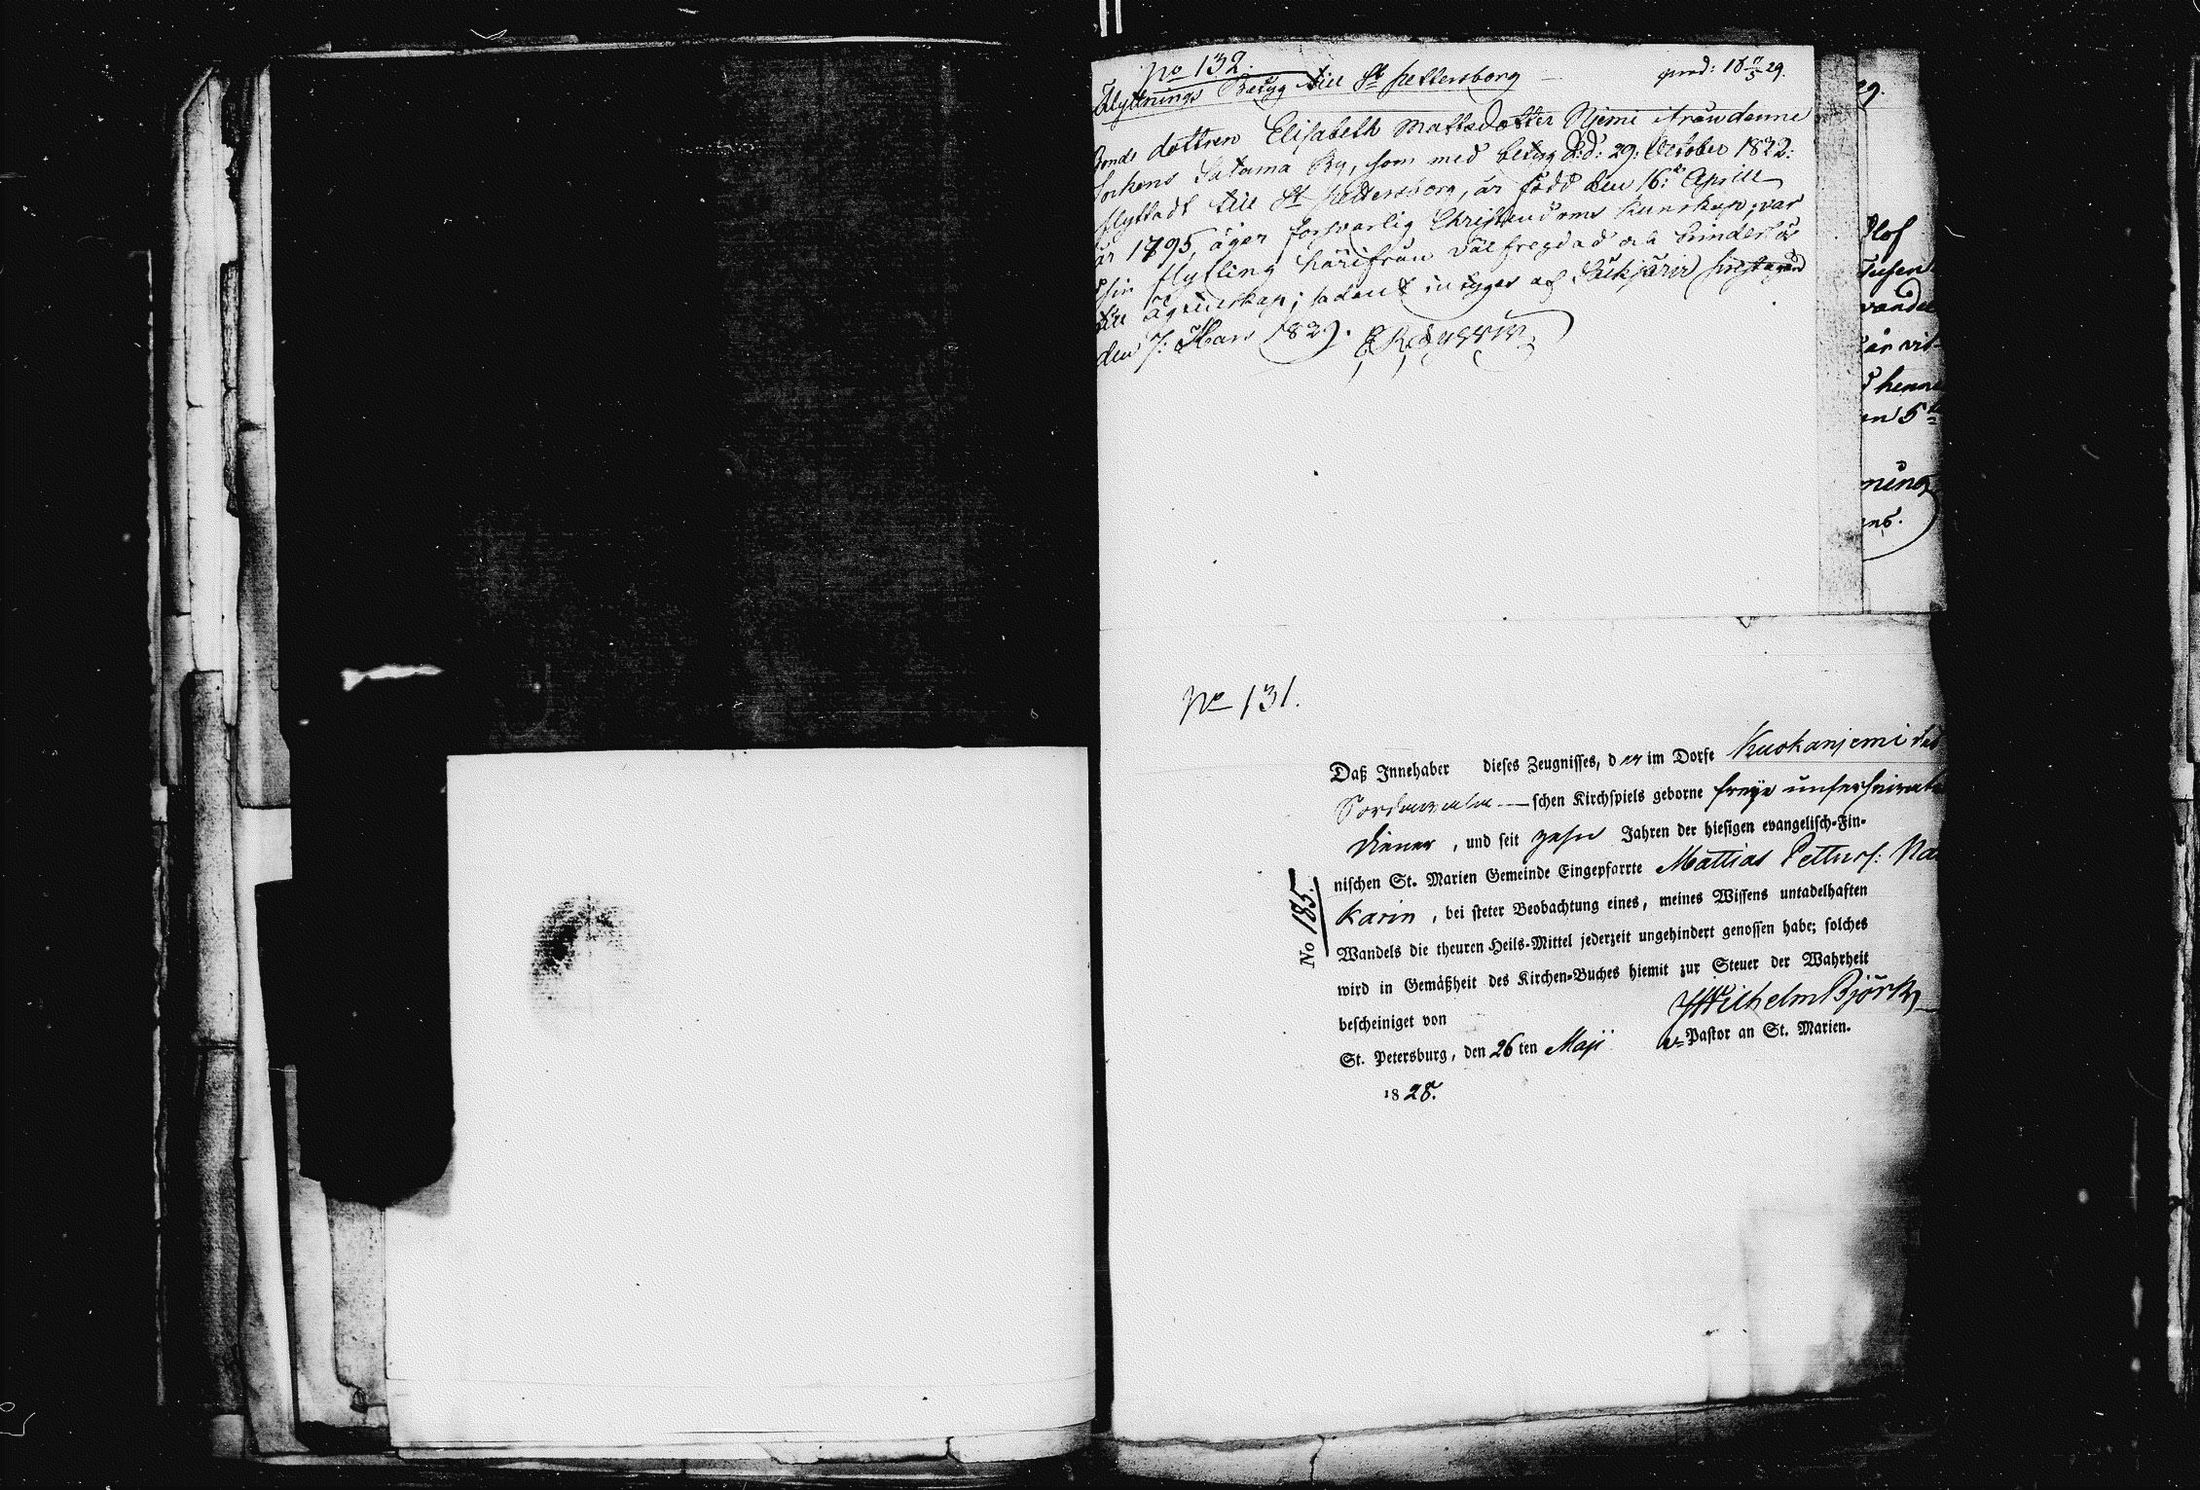 No 132.
Flyttnings Betyg till St Pettersborg prod: 18 11/5 29.
Bonde dottren Elisabeth Mattsdotter Njemi ifrån denne
Sockens Satama By, som med betyg d:d: 29: October 1822:
flyttadt till St Pettersborg, är född den 16:de Aprill
år 1795, äger försvarlig Christendoms Kunskap, var
vid sin flyttning härifrån välfregdad och hinderlös
till ägtenskap; sådant intygar
den 7: Mars 1829.
29.
Olof
vandel
är vit-
d henne
en 5te
ning
ens.
No 131.
Daß Innehaber dieses Zeugnisses, der im Dorfe Kuokanjemi des
Sordawala schen Kirchspiels geborne freye unferheirate
Diener, und seit zehn Jahren der hiesigen evangelisch-Fin-
nischen St. Marien Gemeinde Eingepfarrte Mattias Petturs: Na
karin, bei steter Beobachtung eines, meines Wissens untadelhaften
Wandels die theuren Heils-Mittel jederzeit ungehindert genossen habe; solches
wird in Gemäßheit des Kirchen-Buches hiemit zur Steuer der Wahrheit
bescheiniget von Wilhelm Björk
St. Petersburg, den 26ten Maji v. Pastor an St. Marien.
1828.
No 185.